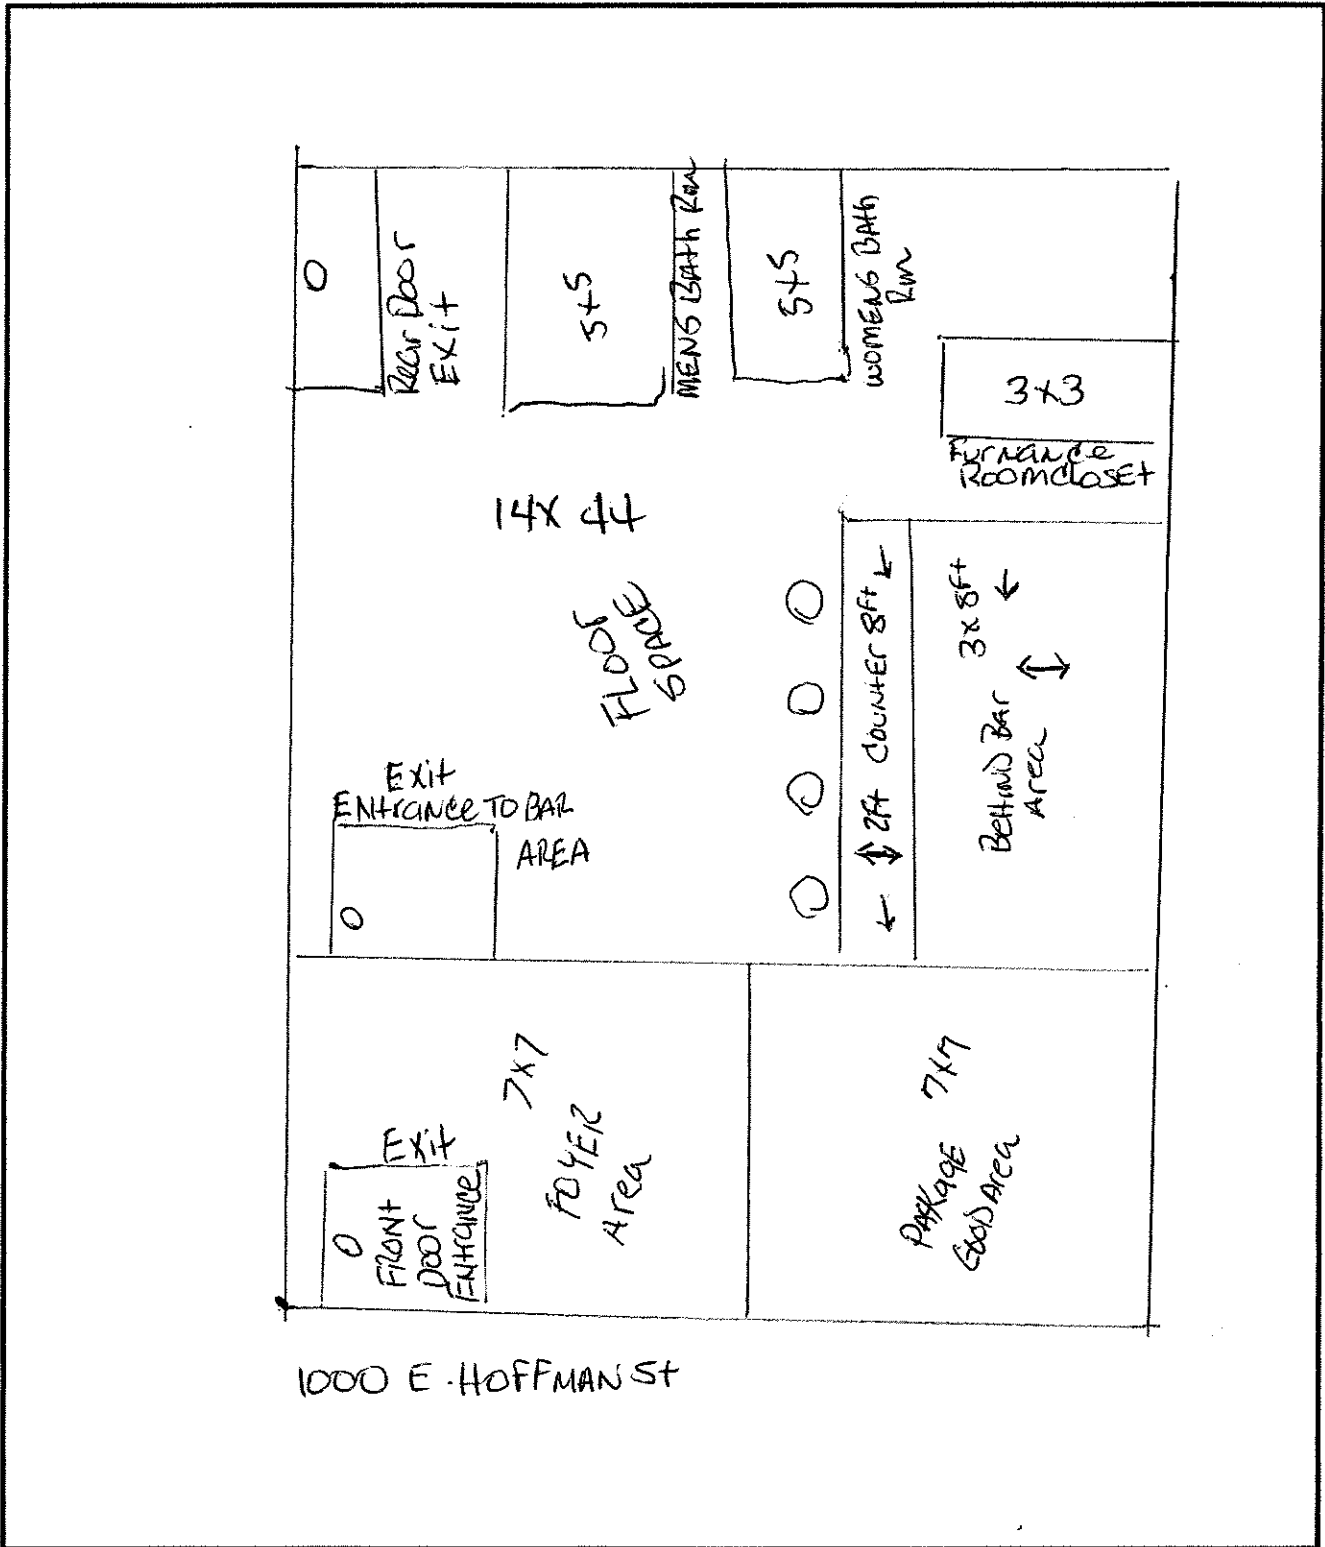 Rear Door
Exit
5x5
MENS BAth Rm
5x5
WOMENS BAth
Rm
3x3
FurNANce
Roomcloset
14X 44
FLOOr
SPACE
2Ft Counter 8Ft
3x8Ft
BEHIND Bar
Area
Exit
ENtrance TO BAR
AREA
7x7
FOYER
Area
Exit
FRONt
Door
ENtrance
PAKage 7x7
GOOD Area
1000 E. HOFFMAN St